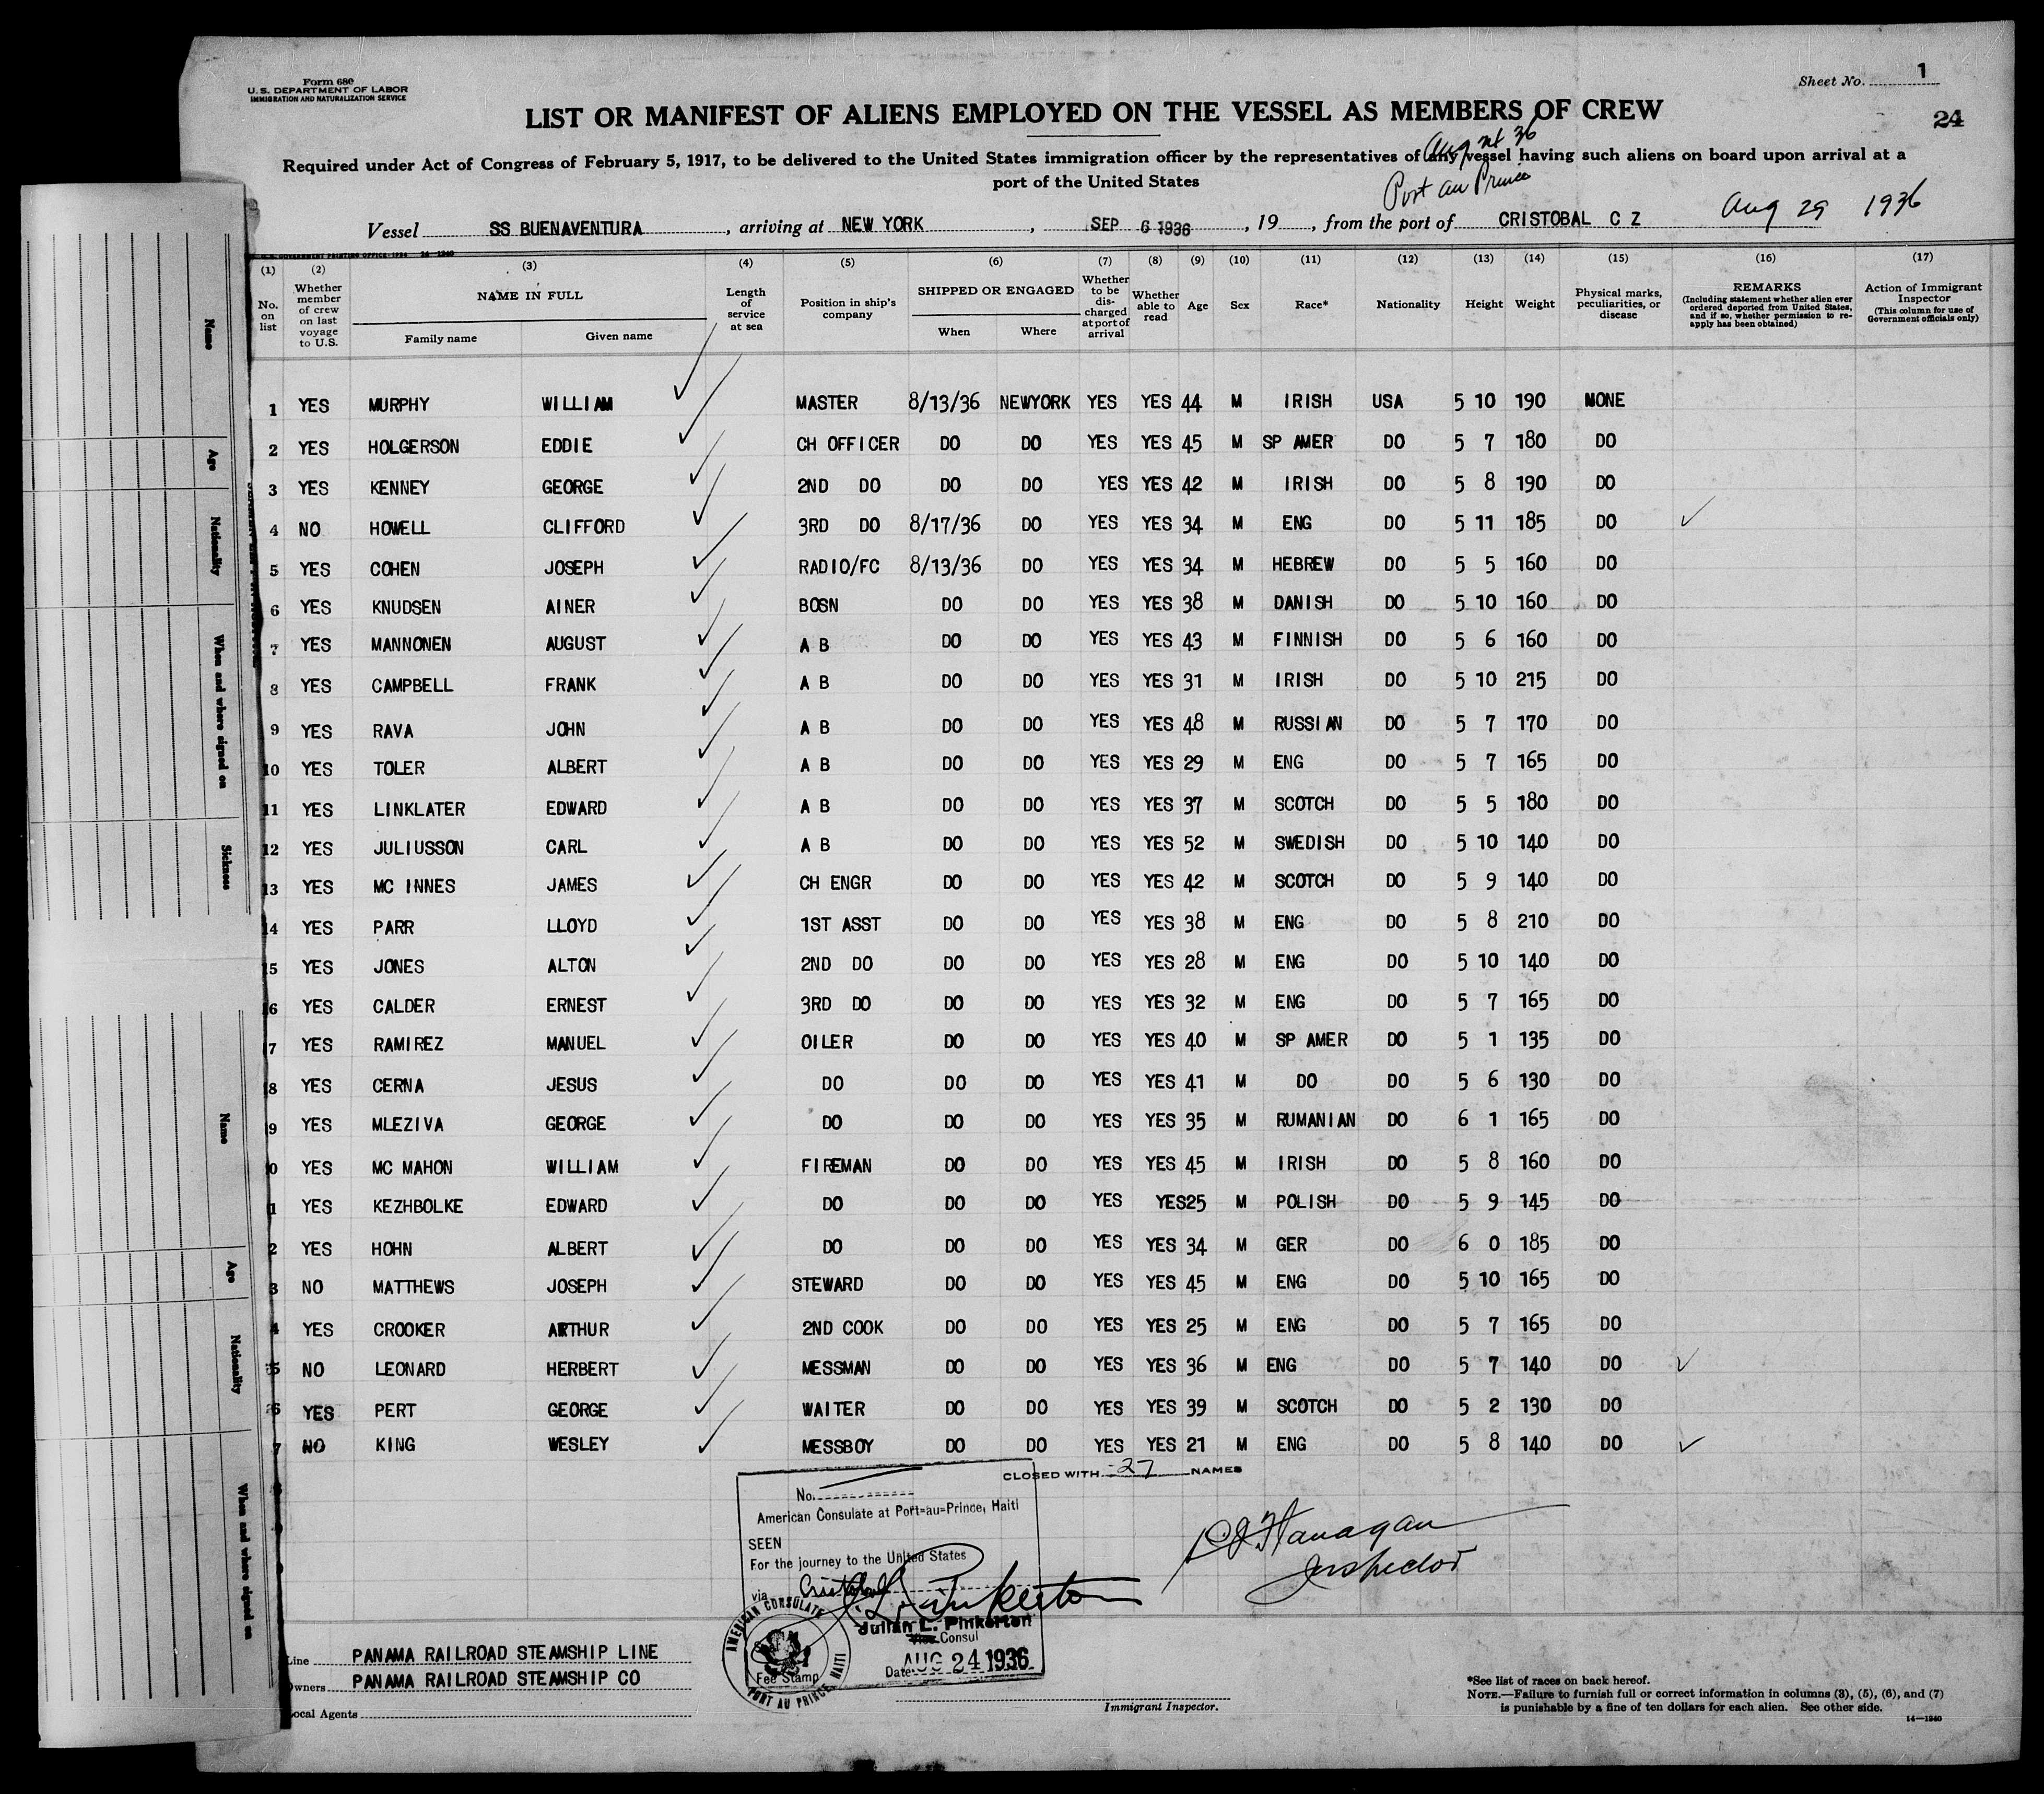 Form 680
U. S. DEPARTMENT OF LABOR
IMMIGRATION AND NATURALIZATION SERVICE
Sheet No. 1
24
LIST OR MANIFEST OF ALIENS EMPLOYED ON THE VESSEL AS MEMBERS OF CREW
Required under Act of Congress of February 5, 1917, to be delivered to the United States immigration officer by the representatives of any vessel having such aliens on board upon arrival at a
port of the United States
Port au Prince
Vessel SS BUENAVENTURA, arriving at NEW YORK, SEP 6 1936, 19, from the port of CRISTOBAL C Z Aug 29 1936
(1) (2) (3) (4) (5) (6) (7) (8) (9) (10) (11) (12) (13) (14) (15) (16) (17)
No. on list
Whether member of crew on last voyage to U.S.
NAME IN FULL
Family name Given name
Length of service at sea
Position in ship's company
SHIPPED OR ENGAGED
When Where
Whether to be discharged at port of arrival
Whether able to read
Age
Sex
Race*
Nationality
Height
Weight
Physical marks, peculiarities, or disease
REMARKS
(Including statement whether alien ever ordered deported from United States, and if so, whether permission to re-apply has been obtained)
Action of Immigrant Inspector
(This column for use of Government officials only)
1 YES MURPHY WILLIAM MASTER 8/13/36 NEWYORK YES YES 44 M IRISH USA 5 10 190 NONE
2 YES HOLGERSON EDDIE CH OFFICER DO DO YES YES 45 M SP AMER DO 5 7 180 DO
3 YES KENNEY GEORGE 2ND DO DO DO YES YES 42 M IRISH DO 5 8 190 DO
4 NO HOWELL CLIFFORD 3RD DO 8/17/36 DO YES YES 34 M ENG DO 5 11 185 DO
5 YES COHEN JOSEPH RADIO/FC 8/13/36 DO YES YES 34 M HEBREW DO 5 5 160 DO
6 YES KNUDSEN AINER BOSN DO DO YES YES 38 M DANISH DO 5 10 160 DO
7 YES MANNONEN AUGUST A B DO DO YES YES 43 M FINNISH DO 5 6 160 DO
8 YES CAMPBELL FRANK A B DO DO YES YES 31 M IRISH DO 5 10 215 DO
9 YES RAVA JOHN A B DO DO YES YES 48 M RUSSIAN DO 5 7 170 DO
10 YES TOLER ALBERT A B DO DO YES YES 29 M ENG DO 5 7 165 DO
11 YES LINKLATER EDWARD A B DO DO YES YES 37 M SCOTCH DO 5 5 180 DO
12 YES JULIUSSON CARL A B DO DO YES YES 52 M SWEDISH DO 5 10 140 DO
13 YES MC INNES JAMES CH ENGR DO DO YES YES 42 M SCOTCH DO 5 9 140 DO
14 YES PARR LLOYD 1ST ASST DO DO YES YES 38 M ENG DO 5 8 210 DO
15 YES JONES ALTON 2ND DO DO DO YES YES 28 M ENG DO 5 10 140 DO
6 YES CALDER ERNEST 3RD DO DO DO YES YES 32 M ENG DO 5 7 165 DO
7 YES RAMIREZ MANUEL OILER DO DO YES YES 40 M SP AMER DO 5 1 135 DO
8 YES CERNA JESUS DO DO DO YES YES 41 M DO DO 5 6 130 DO
9 YES MLEZIVA GEORGE DO DO DO YES YES 35 M RUMANIAN DO 6 1 165 DO
0 YES MC MAHON WILLIAM FIREMAN DO DO YES YES 45 M IRISH DO 5 8 160 DO
1 YES KEZHBOLKE EDWARD DO DO DO YES YES25 M POLISH DO 5 9 145 DO
2 YES HOHN ALBERT DO DO DO YES YES 34 M GER DO 6 0 185 DO
3 NO MATTHEWS JOSEPH STEWARD DO DO YES YES 45 M ENG DO 5 10 165 DO
4 YES CROOKER ARTHUR 2ND COOK DO DO YES YES 25 M ENG DO 5 7 165 DO
5 NO LEONARD HERBERT MESSMAN DO DO YES YES 36 M ENG DO 5 7 140 DO
6 YES PERT GEORGE WAITER DO DO YES YES 39 M SCOTCH DO 5 2 130 DO
7 NO KING WESLEY MESSBOY DO DO YES YES 21 M ENG DO 5 8 140 DO
CLOSED WITH 27 NAMES
No.
American Consulate at Port-au-Prince, Haiti
SEEN
For the journey to the United States
via Cristobal
Julian L. Pinkerton
Vice Consul
Date AUG 24 1936
AMERICAN CONSULATE
PORT AU PRINCE, HAITI
Fee Stamp
Flanagan
Inspector
Line PANAMA RAILROAD STEAMSHIP LINE
Owners PANAMA RAILROAD STEAMSHIP CO
Local Agents
Immigrant Inspector.
*See list of races on back hereof.
NOTE.—Failure to furnish full or correct information in columns (3), (5), (6), and (7)
is punishable by a fine of ten dollars for each alien. See other side.
14—1240
Name
Age
Nationality
When and where signed on
Sickness
Name
Age
Nationality
When and where signed on